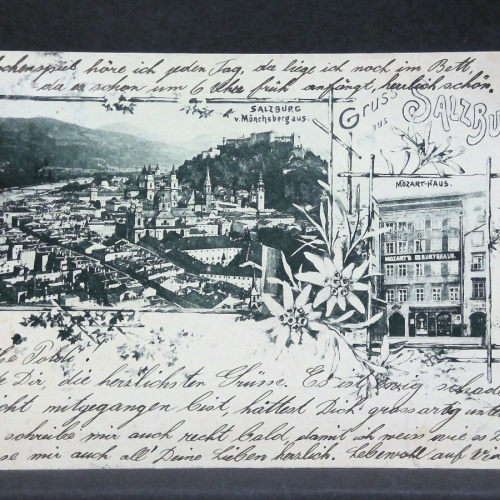 ochenspiel höre ich jeden Tag, da liege ich noch im Bett,
da es schon um 6 Uhr früh anfängt, herrlich schön.
SALZBURG
v. Mönchsberg aus.
Gruss
aus
SALZBU
MOZART-HAUS.
MOZART'S GEBURTSHAUS.
be Poldi
te Dir, die herzlichsten Grüsse. Es ist schade
cht mitgegangen bist, hättest Dich grossartig unte
schreibe mir auch recht bald, damit ich weiss wie es D
se mir auch all' Deine Lieben herzlich. Lebewoll auf